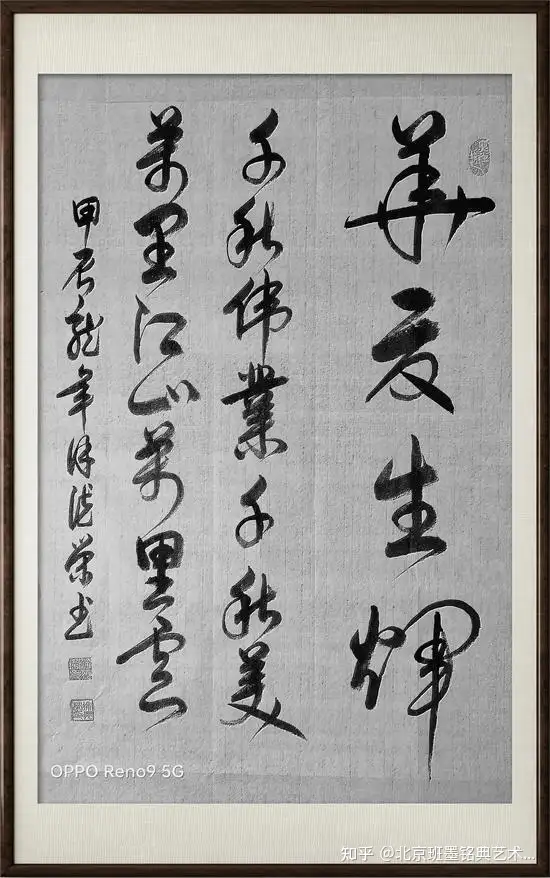 華夏生輝
千秋伟業千秋美
萬里江山萬里雲
甲辰龍年荣书
OPPO Reno9 5G
知乎 @北京班墨铭典艺术...